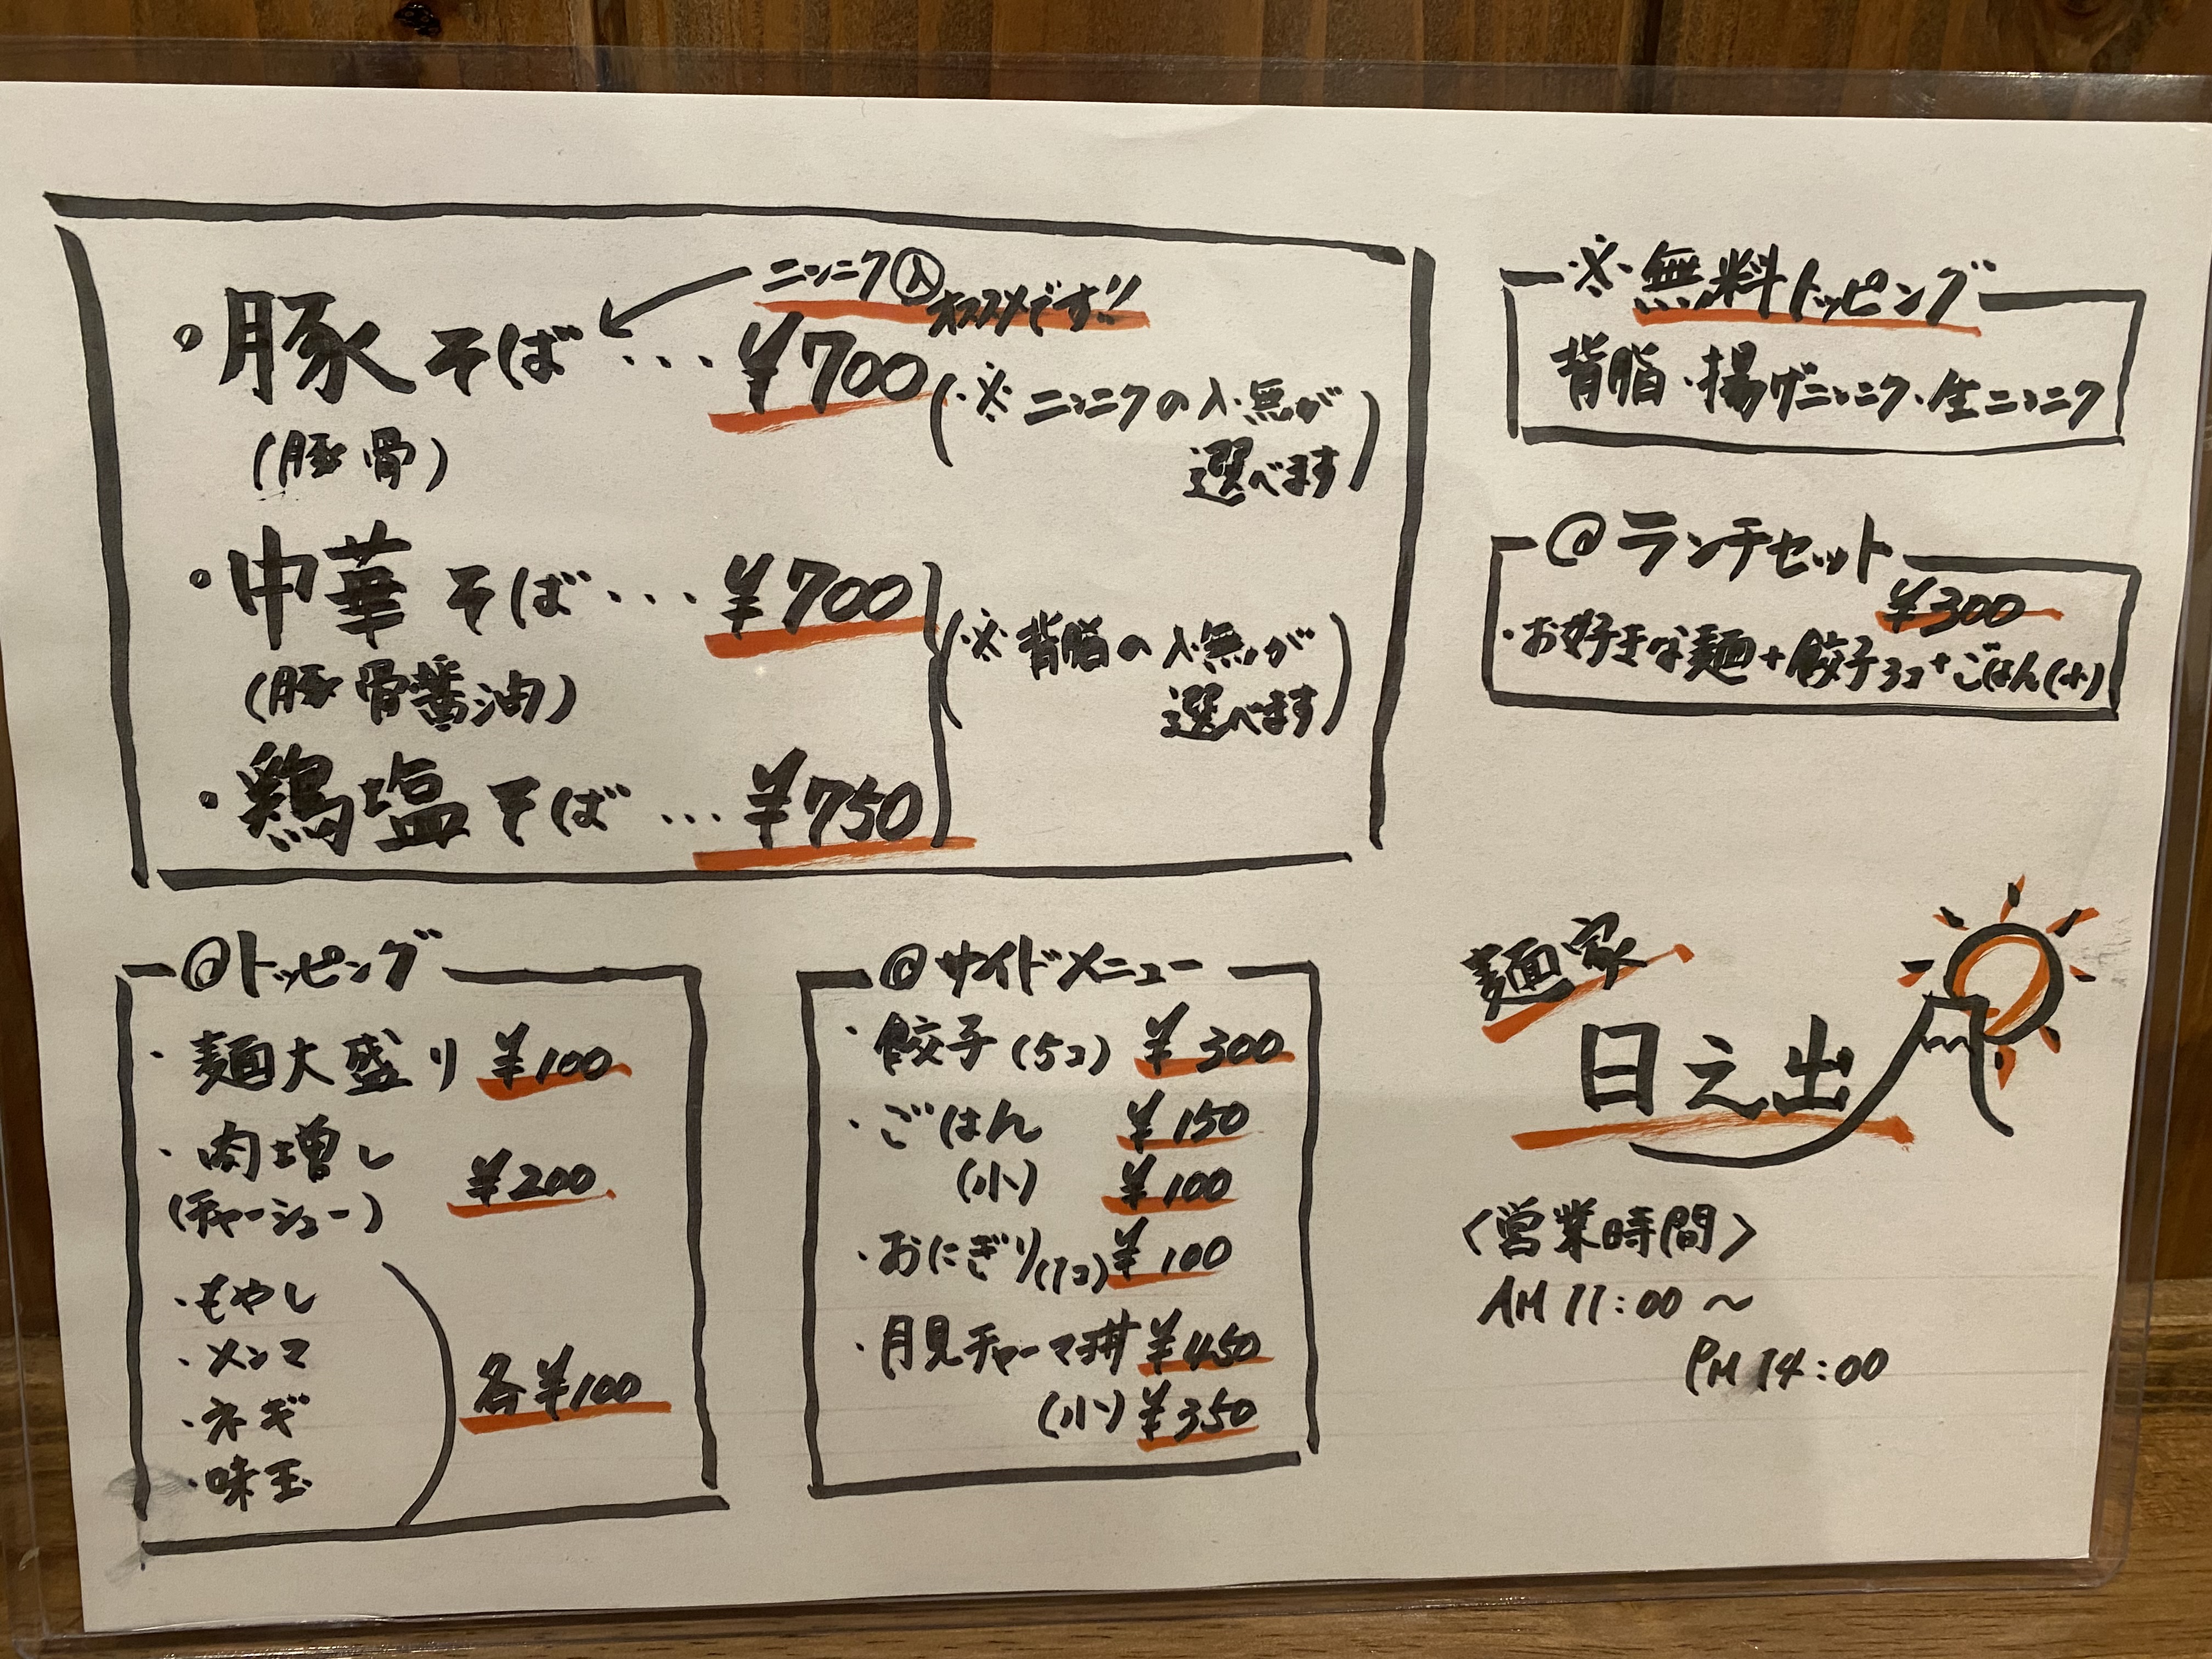 ニンニク入オススメです!!
・豚そば・・・¥700
(※ニンニクの入・無が
選べます)
(豚骨)
・中華そば・・・¥700
(※背脂の入・無が
選べます)
(豚骨醤油)
・鶏塩そば・・・¥750
※無料トッピング
背脂・揚げニンニク・生ニンニク
@ランチセット
¥300
・お好きな麺+餃子3コ+ごはん(小)
@トッピング
・麺大盛り ¥100
・肉増し ¥200
(チャーシュー)
・もやし
・メンマ
・ネギ
・味玉
各¥100
@サイドメニュー
・餃子(5コ) ¥300
・ごはん ¥150
(小) ¥100
・おにぎり(1コ) ¥100
・月見チャーマヨ丼 ¥450
(小) ¥350
麺家
日之出
〈営業時間〉
AM 11:00 〜
PM 14:00